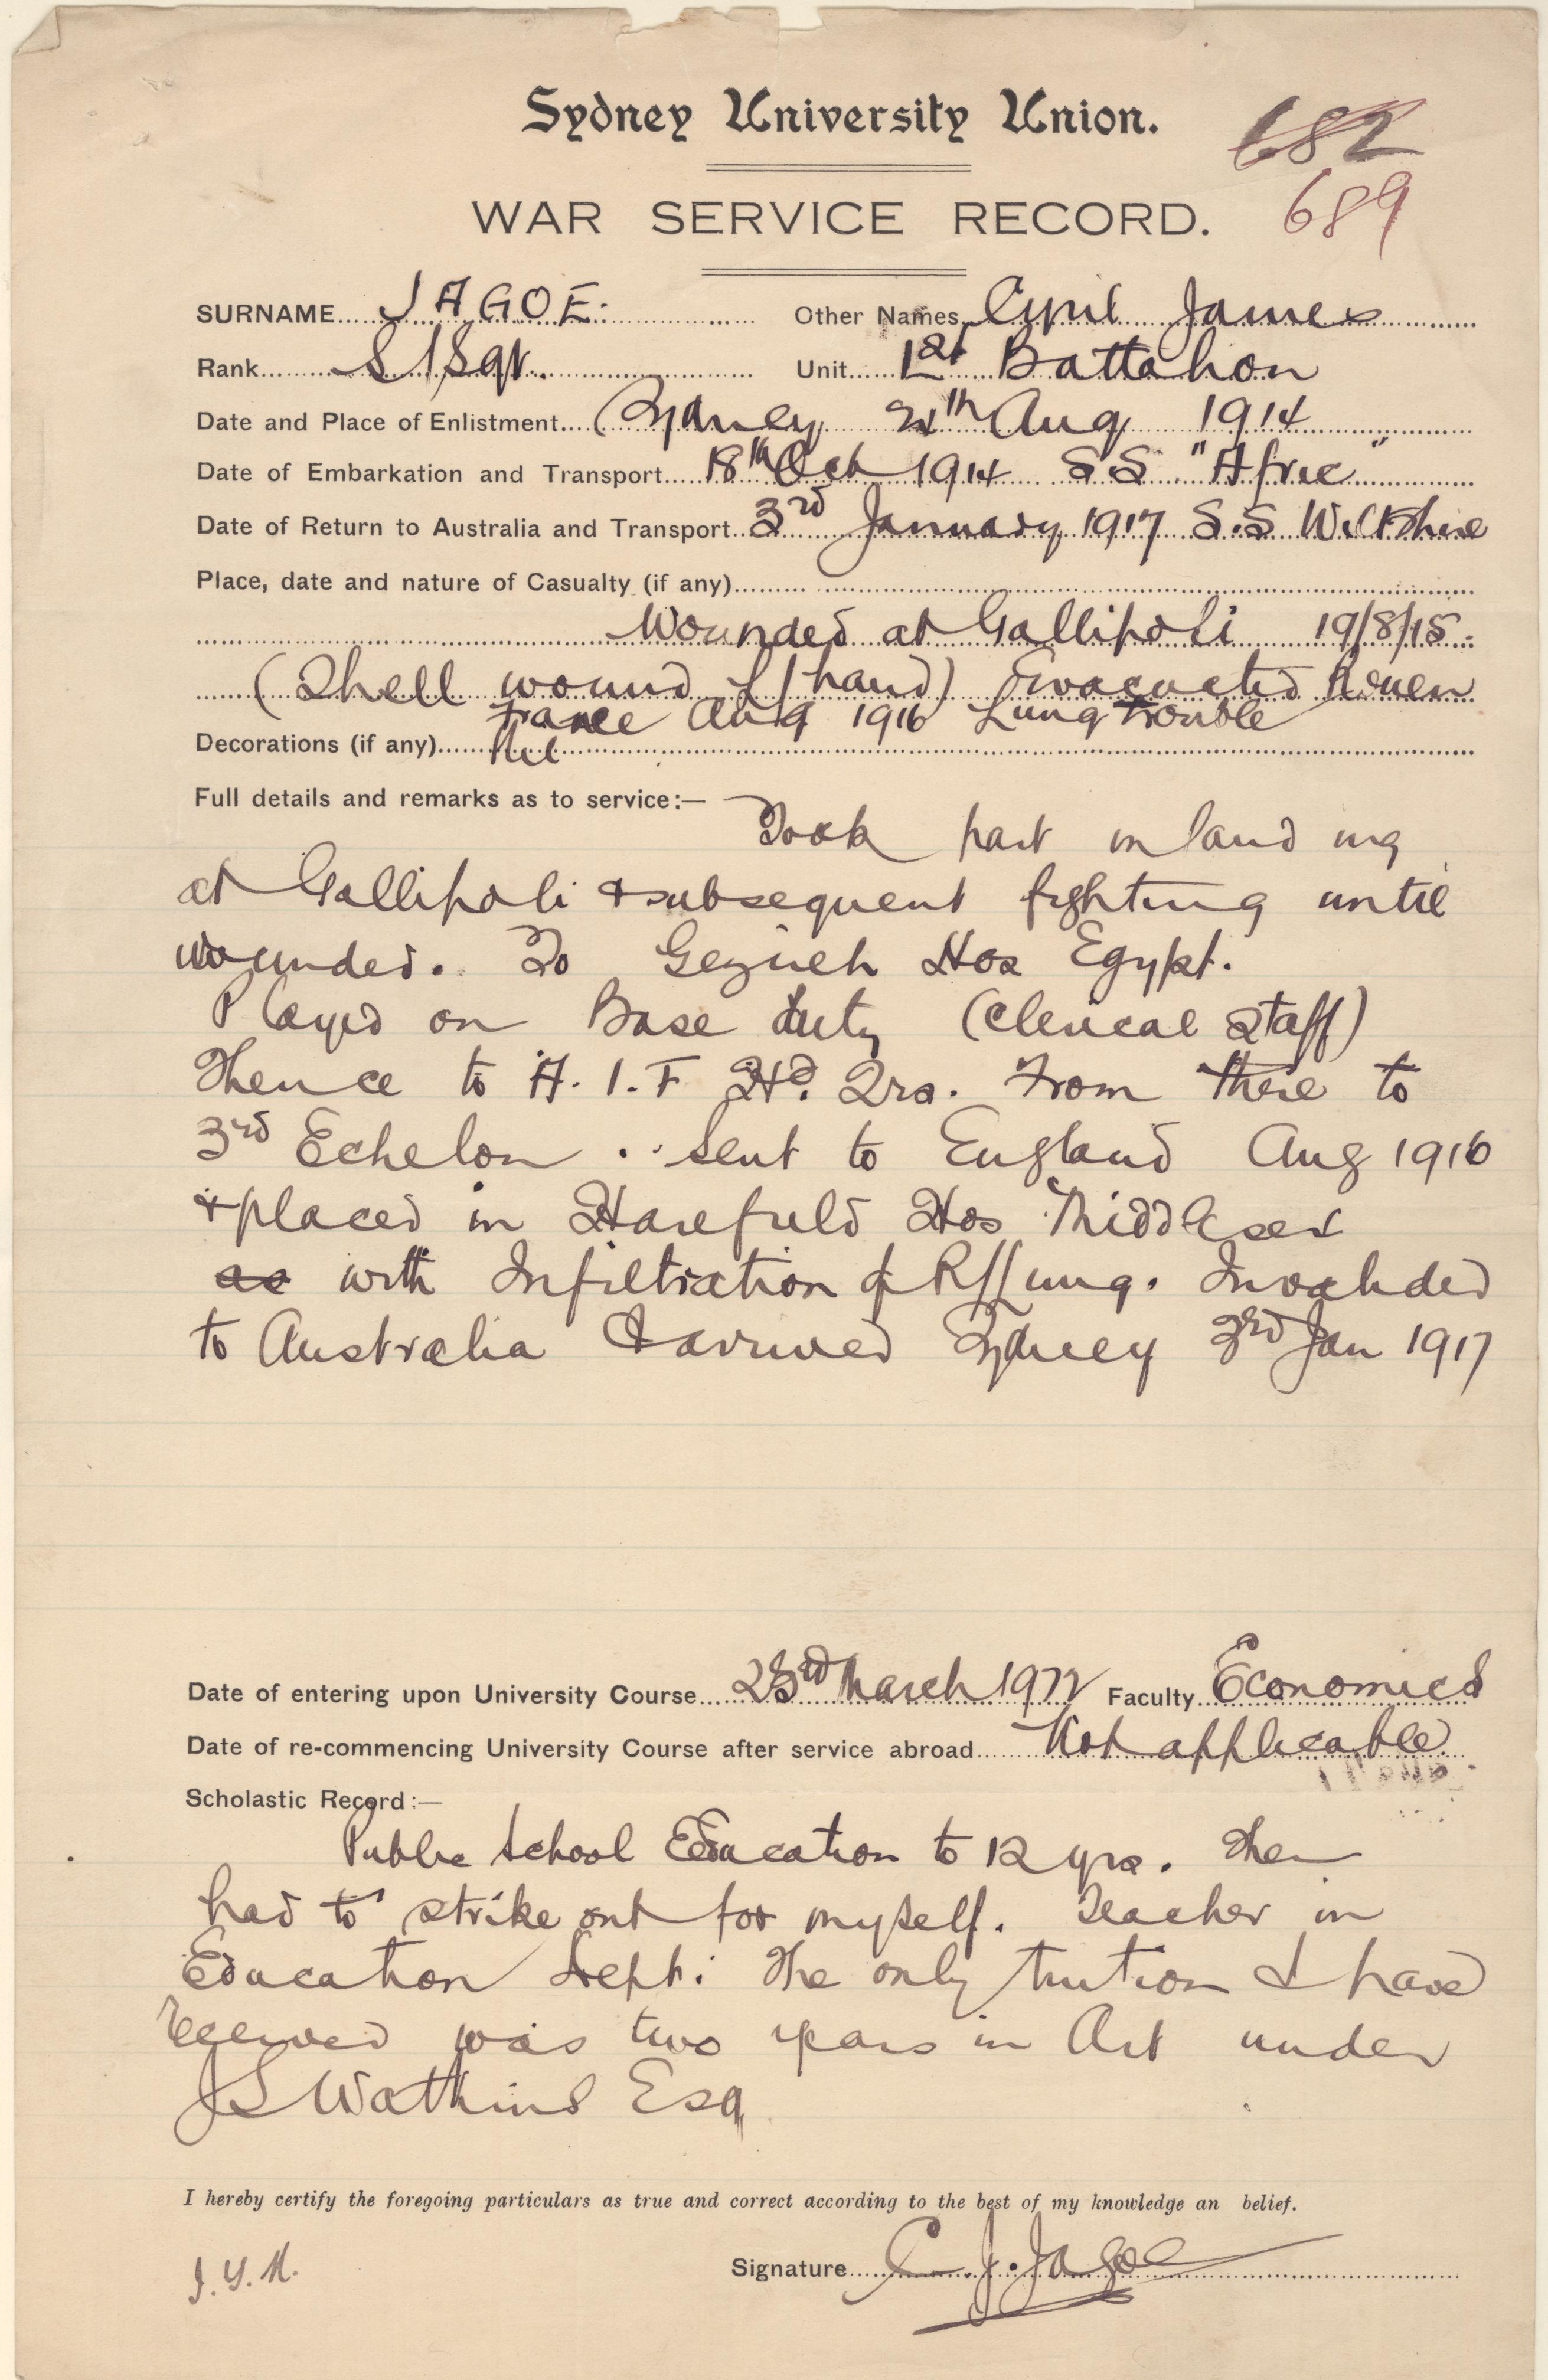 Sydney University Union.
682
WAR SERVICE RECORD.
689
SURNAME JAGOE. Other Names Cyril James
Rank S/Sgt. Unit 1st Battalion
Date and Place of Enlistment Sydney Aug 1914
Date of Embarkation and Transport 18th Oct 1914 SS "Afric"
Date of Return to Australia and Transport 3rd January 1917 S.S Wiltshire
Place, date and nature of Casualty (if any)
Wounded at Gallipoli 19/8/15.
(Shell wound L/hand) Evacuated Rouen
France Aug 1916 Lung trouble
Decorations (if any) Nil
Full details and remarks as to service:—
Took part in landing
at Gallipoli & subsequent fighting until
wounded. To Gezireh Hos Egypt.
Played on Base duty (Clerical Staff)
Thence to A.I.F Hd. Qrs. From there to
3rd Echelon. Sent to England Aug 1916
& placed in Harefield Hos Middlesex
as with Infiltration of R/Lung. Invalided
to Australia & arrived Sydney 3rd Jan 1917
Date of entering upon University Course 23rd March 1922 Faculty Economics
Date of re-commencing University Course after service abroad Not applicable
Scholastic Record:—
Public School Education to 12 yrs. Then
had to strike out for myself. Teacher in
Education Dept. The only tuition I have
received was two years in Art under
J S Watkins Esq
I hereby certify the foregoing particulars as true and correct according to the best of my knowledge an belief.
Signature C. J. Jagoe